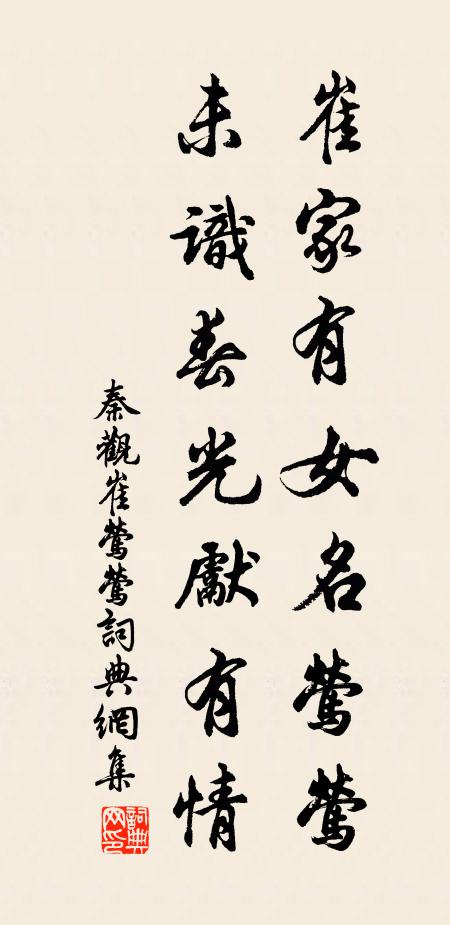 崔家有女名鶯鶯
未識春光獻有情
秦觀崔鶯鶯詞典網集
詞典
网印